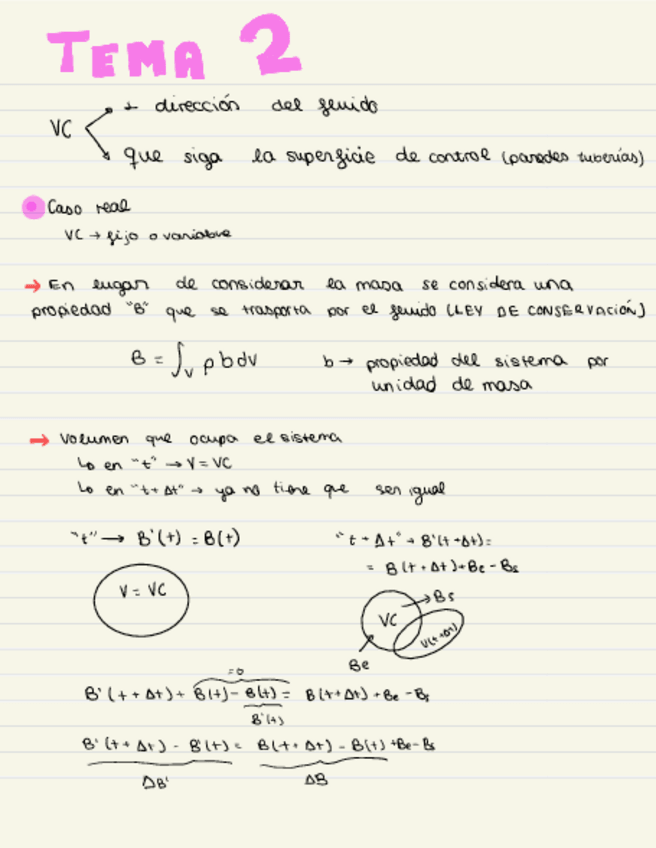 TEMA 2
VC
⊥ dirección del fluido
que siga la superficie de control (paredes tuberías)
Caso real
VC → fijo o variable
→ En lugar de considerar la masa se considera una
propiedad "B" que se trasporta por el fluido (LEY DE CONSERVACIÓN)
B = ∫v ρ b dv
b → propiedad del sistema por
unidad de masa
→ Volumen que ocupa el sistema
↳ en "t" → V = VC
↳ en "t + Δt" → ya no tiene que ser igual
"t" → B'(t) = B(t)
"t + Δt" → B'(t + Δt) =
= B(t + Δt) + Be - Bs
V = VC
VC
Bs
V(t+Δt)
Be
=0
B'(t + Δt) + B(t) - B(t) = B(t + Δt) + Be - Bs
B'(t)
B'(t + Δt) - B'(t) = B(t + Δt) - B(t) + Be - Bs
ΔB'
ΔB